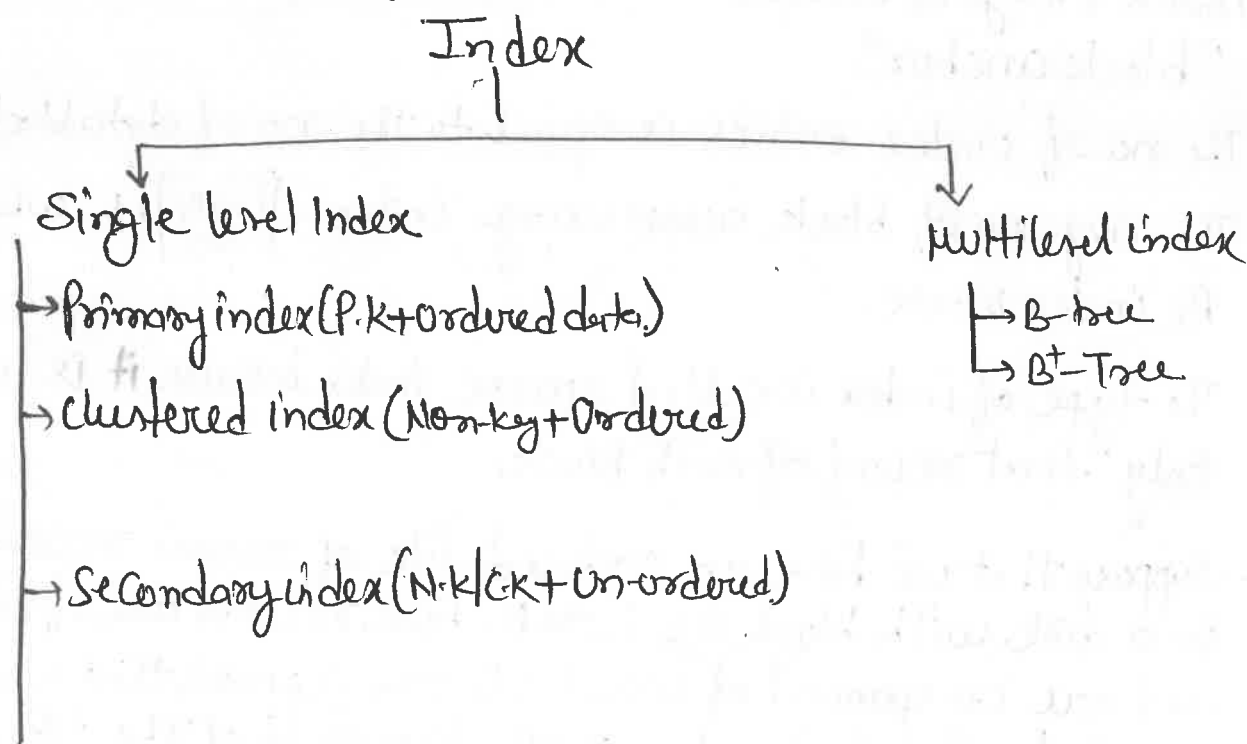 Index
Single level Index
→Primary index (P.K+Ordered data.)
→Clustered index (Non-key+Ordered)
→Secondary index (N.K|C.K+Un-ordered)
Multilevel index
→B-tree
→B+-Tree